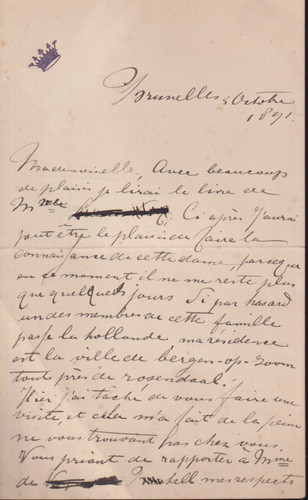 Bruxelles 5 Octobre
1891.
Mademoiselle, Avec beaucoup
de plaisir je lirai le livre de
Mme. Ci après j'aurai
peut être le plaisir de faire la
connaissance de cette dame, parceque
en ce moment il ne me reste plus
que quelques jours. Si par hasard
un des membres de cette famille
passe la hollande, ma residence
est la ville de bergen-op-zoom
tout près de rosendaal.
Hier j'ai tâché de vous faire une
visite, et cela m'a fait de la peine
ne vous trouvant pas chez vous
Vous priant de rapporter à Mme
de mes respects